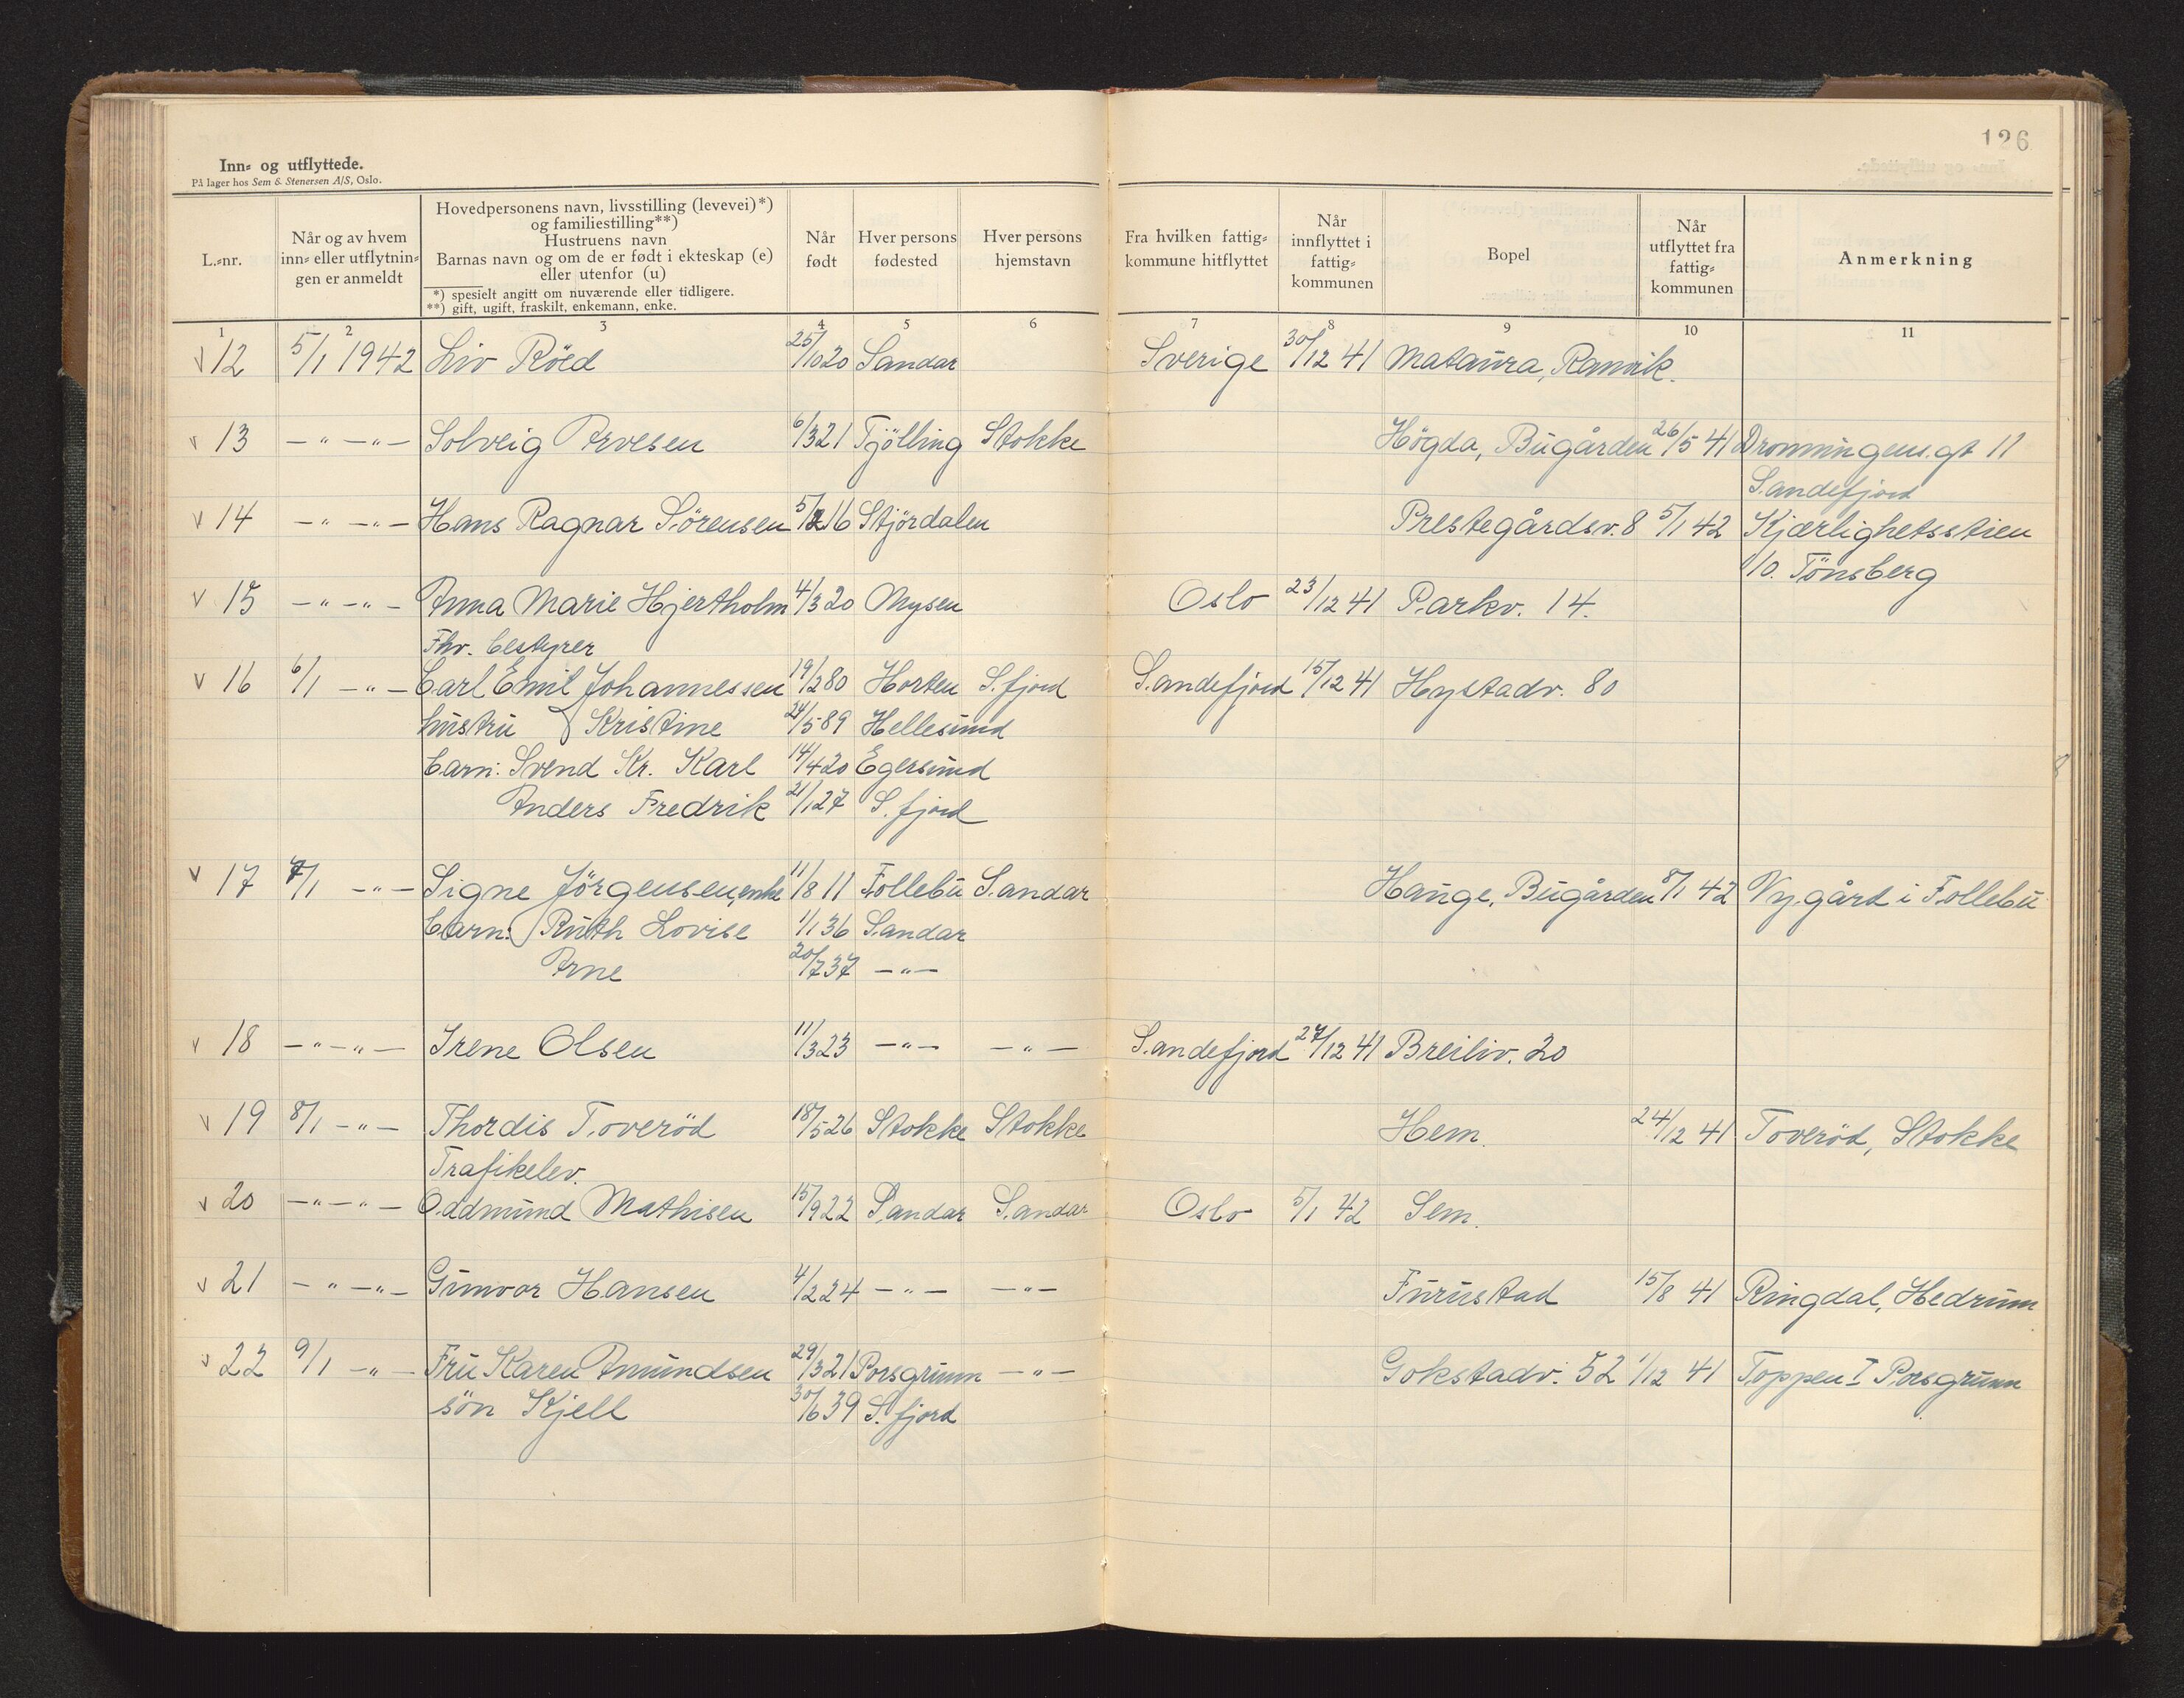 126
Inn- og utflyttede.
På lager hos Sem & Stenersen A/S, Oslo.
L.-nr.
Når og av hvem inn- eller utflytningen er anmeldt
Hovedpersonens navn, livsstilling (levevei)*)
og familiestilling**)
Hustruens navn
Barnas navn og om de er født i ekteskap (e)
eller utenfor (u)
*) spesielt angitt om nuværende eller tidligere.
**) gift, ugift, fraskilt, enkemann, enke.
Når født
Hver persons fødested
Hver persons hjemstavn
Fra hvilken fattig-kommune hitflyttet
Når innflyttet i fattig-kommunen
Bopel
Når utflyttet fra fattig-kommunen
Anmerkning
1 2 3 4 5 6 7 8 9 10 11
v 12 5/1 1942 Liv Röed 25/10 20 Sandar Sverige 30/12 41 Mataura, Ranvik.
v 13 —"—"— Solveig Arvesen 6/3 21 Tjölling Stokke Högda, Bugården 26/5 41 Dronningens.gt 11
Sandefjord
v 14 —"—"— Hans Ragnar Sörensen 5/2 16 Stjördalen Prestegårdsv. 8 5/1 42 Kjærlighetsstien
1/0. Tönsberg
v 15 —"—"— Anna Marie Hjertholm 4/3 20 Mysen Oslo 23/12 41 Parkv. 14.
Fhv. bestyrer
v 16 6/1 —"— Carl Emil Johannessen 19/2 80 Horten S.fjord Sandefjord 15/12 41 Hystadv. 80
hustru Kristine 24/5 89 Hellesund
barn: Svend Kr. Karl 14/4 20 Egersund
Anders Fredrik 21/1 27 S.fjord
v 17 7/1 —"— Signe Jörgensen, enke 11/8 11 Follebu Sandar Hauge, Bugården 8/1 42 Ny.gård i Follebu
barn: Ruth Lovise 1/1 36 Sandar
Arne 20/7 37 —"—
v 18 —"—"— Irene Olsen 11/3 23 —"— —"— Sandefjord 27/12 41 Breiliv. 20
v 19 8/1 —"— Thordis Toveröd 18/5 26 Stokke Stokke Hem. 24/12 41 Toveröd, Stokke
Trafikelev.
v 20 —"—"— Oddmund Mathisen 15/9 22 Sandar Sandar Oslo 5/1 42 Sem.
v 21 —"—"— Gunvor Hansen 4/2 24 —"— —"— Furustad 15/8 41 Ringdal, Hedrum
v 22 9/1 —"— Fru Karen Amundsen 29/3 21 Porsgrunn —"— Gokstadv. 52 1/12 41 Toppen I Porsgrunn
sön Kjell 30/6 39 S.fjord